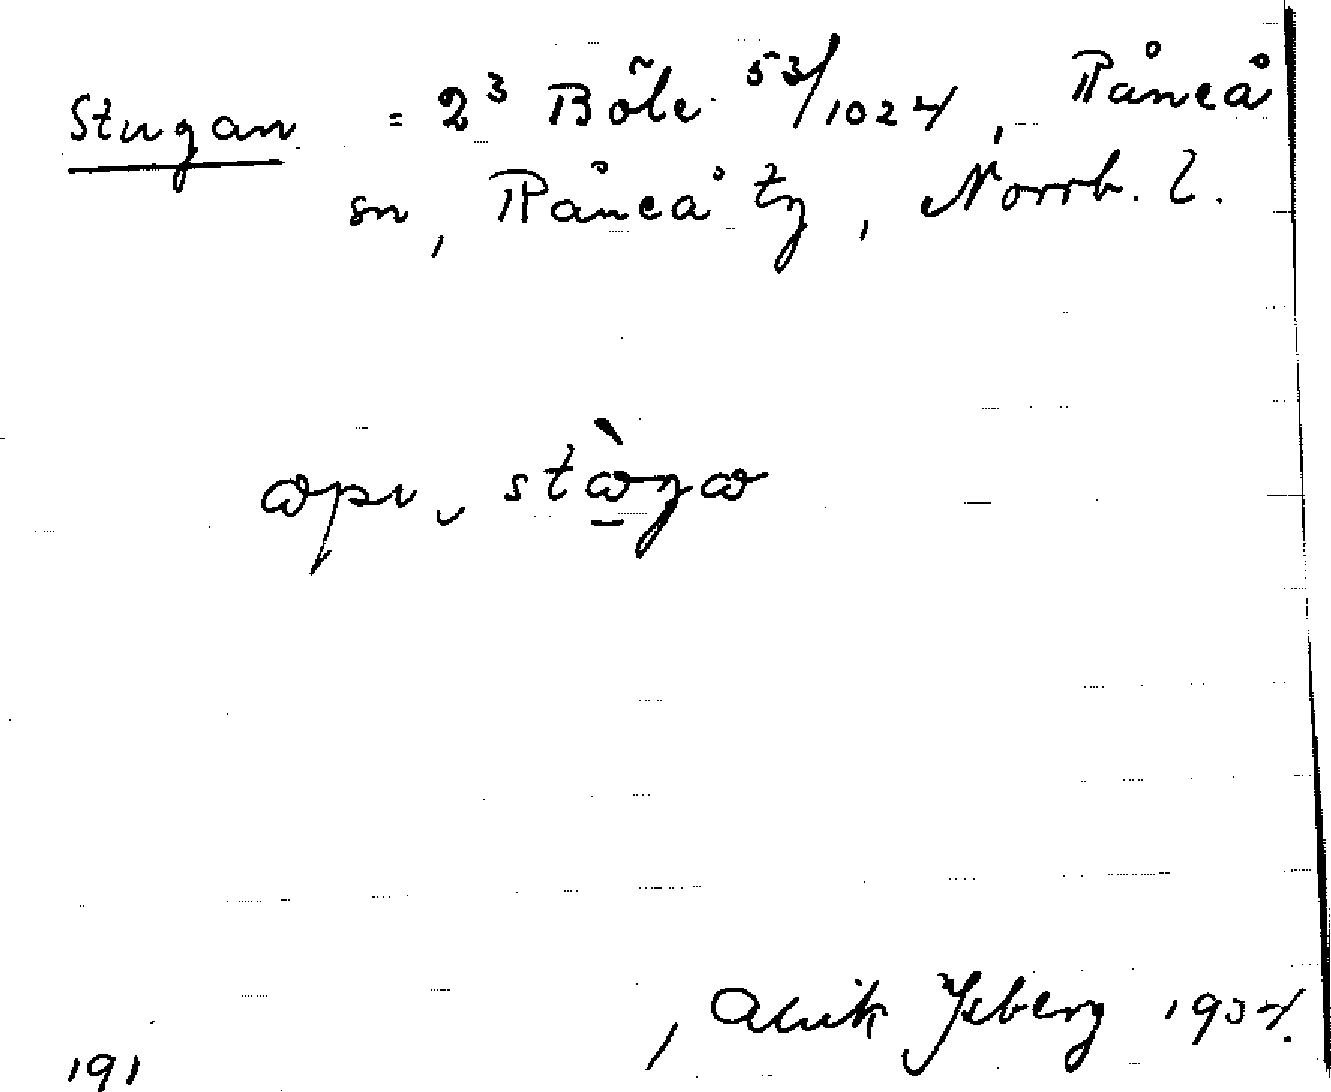 Stugan = 2³ Böle 53/1024, Råneå
sn, Råneå tg, Norrb. l.
stɷ̀gɷ
, Alrik Ysberg 1934.
191